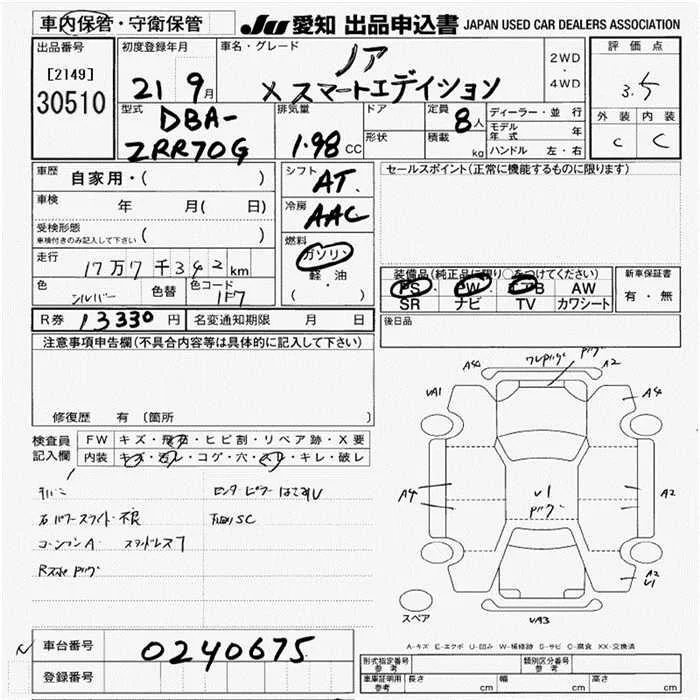 車内保管・守衛保管
JU 愛知 出品申込書 JAPAN USED CAR DEALERS ASSOCIATION
出品番号
[2149]
30510
初度登録年月
21 9月
車名・グレード
ノア
X スマートエディション
2WD
・
4WD
評価点
3.5
外装 内装
C C
型式
DBA-
ZRR70G
排気量
1.98 CC
ドア
形状
定員 8人
積載 kg
ディーラー・並行
モデル年式 年
ハンドル 左・右
車歴
自家用・( )
車検 年 月( 日)
受検形態
車検付きのみ記入して下さい ( )
走行
17万7千342km
色 シルバー 色替 色コード 1F7
シフト
AT.
冷房
AAC
燃料
ガソリン
軽・油
( )
セールスポイント(正常に機能するものに限ります)
装備品(純正品に限り○をつけてください)
PS PW エアB AW
SR ナビ TV カワシート
新車保証書
有・無
R券 13330円 名変通知期限 月 日
後日品
注意事項申告欄(不具合内容等は具体的に記入して下さい)
修復歴 有 〔箇所
検査員
記入欄
FW キズ・飛石・ヒビ割・リペア跡・X要
内装 キズ・汚レ・コゲ・穴・スリ・キレ・破レ
右パワースライド不良
コーションA
A4 A2
UA1 A4
A4 U1 A2
A2
U1
UA3
スペア
A-キズ E-エクボ U-凹み W-補修跡 S-サビ C-腐食 XX-交換済
車台番号 0240675
登録番号
形式指定番号
参考
類別区分番号
参考
車庫証明用
参考
長さ cm 幅 cm 高さ cm